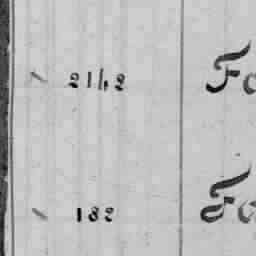 2142 Fo
182 Fo